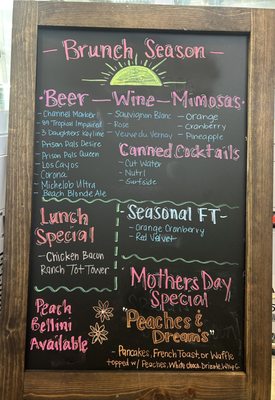 Brunch Season
Beer - Wine - Mimosas
- Channel Marker
- 89 Tropical Impaired
- 3 Daughters Key Lime
- Prison Pals Desire
- Prison Pals Queen
- Los Cayos
- Corona
- Michelob Ultra
- Beach Blonde Ale
- Sauvignon Blanc
- Rose
- Veuve du Vernay
- Orange
- Cranberry
- Pineapple
Canned Cocktails
- Cut Water
- Nutrl
- Surfside
Lunch
Special
- Chicken Bacon
Ranch Tot Tower
- Seasonal FT -
- Orange Cranberry
- Red Velvet
Peach
Bellini
Available
Mothers Day
Special
"Peaches &
Dreams"
- Pancakes, French Toast, or Waffle
topped w/ Peaches, White choco. Drizzle, Whip C.